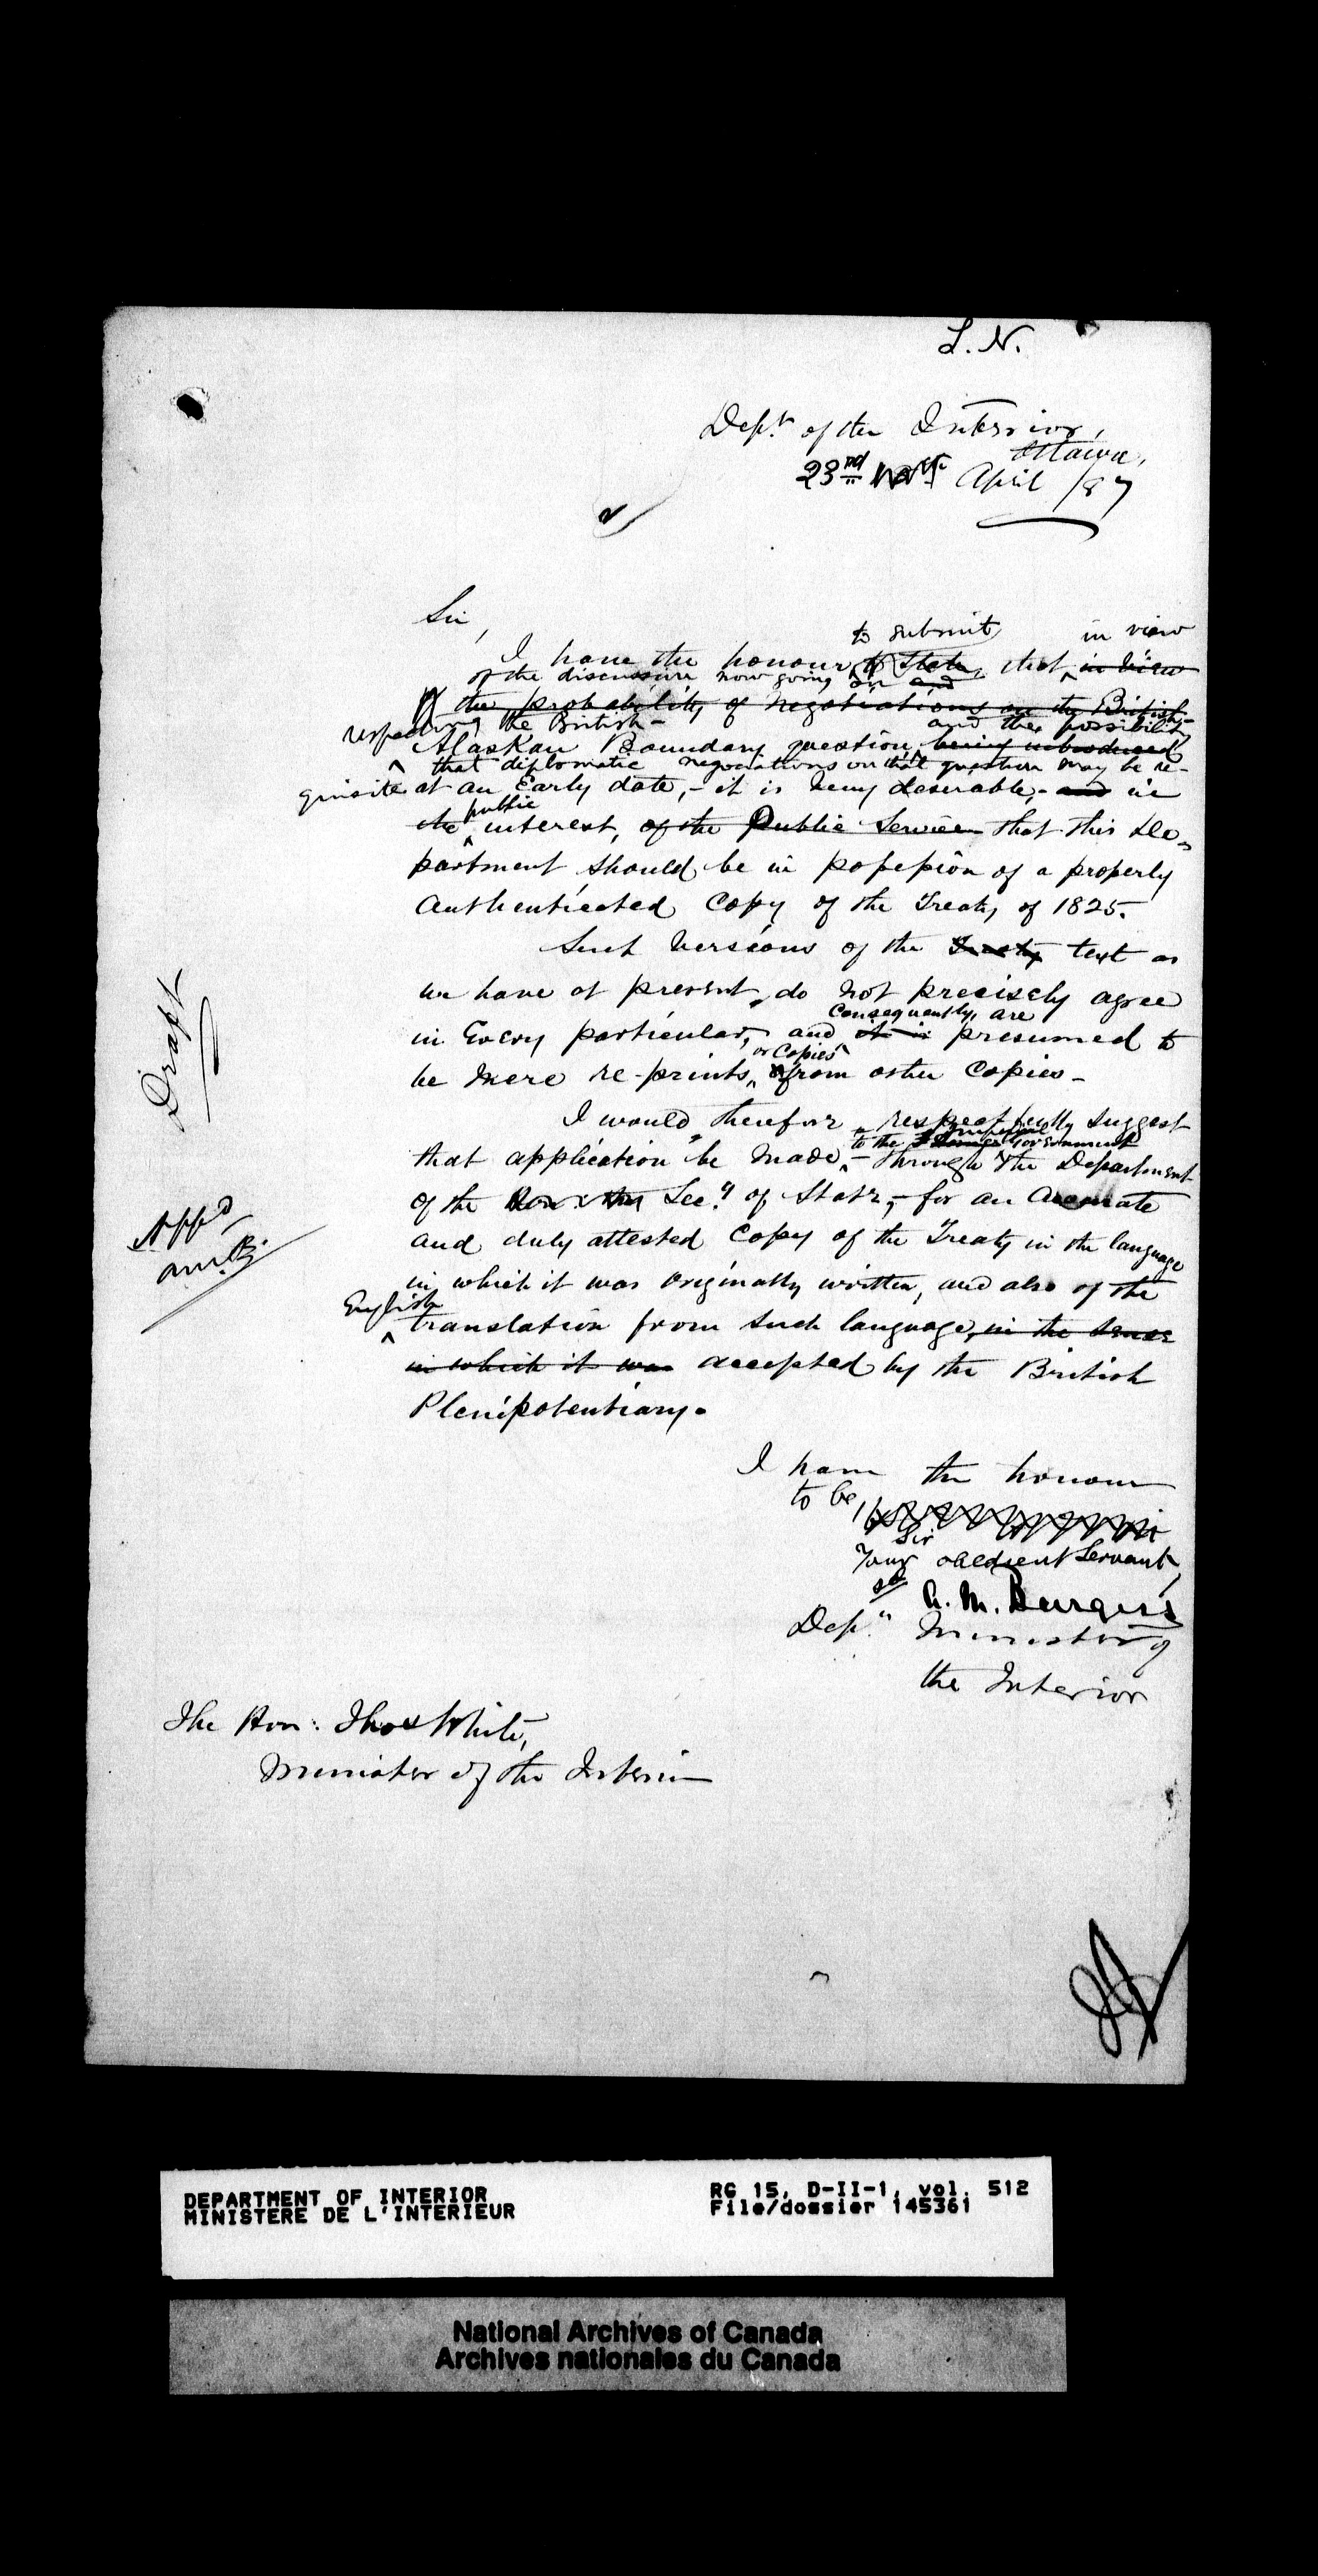 L. N.
Dept. of the Interior,
Ottawa,
23rd April /87
Sir,
to submit in view
I have the honour to state, that in view
of the discussion now going on and
of the probability of negotiations on the British-
respecting the British- and the possibility
Alaskan Boundary question, being introduced
that diplomatic negociations on that question may be re-
quisite at an early date, - it is very desirable, - and in
public
the interest, of the Public Service that this De-
partment should be in possession of a properly
authenticated copy of the Treaty of 1825.
Such versions of the Treaty text as
we have at present, do not precisely agree
consequently, are
in every particular, and it is presumed to
or copies
be mere re-prints, from other copies -
I would, therefor, respectfully suggest
to the Imperial Government
that application be made, - through the Department
of the Hon. the Secy. of State, - for an accurate
and duly attested copy of the Treaty in the language
in which it was originally written, and also of the
English
translation from such language, in the sense
in which it was accepted by the British
Plenipotentiary.
I have the honour
to be,
Sir
Your obedient Servant,
sd A. M. Burgess
Depy. Minister of
the Interior
The Hon: Thos White,
Minister of the Interior
Draft
Appd
A.M.B.
DEPARTMENT OF INTERIOR
MINISTERE DE L'INTERIEUR
RG 15, D-II-1, vol. 512
File/dossier 145361
National Archives of Canada
Archives nationales du Canada